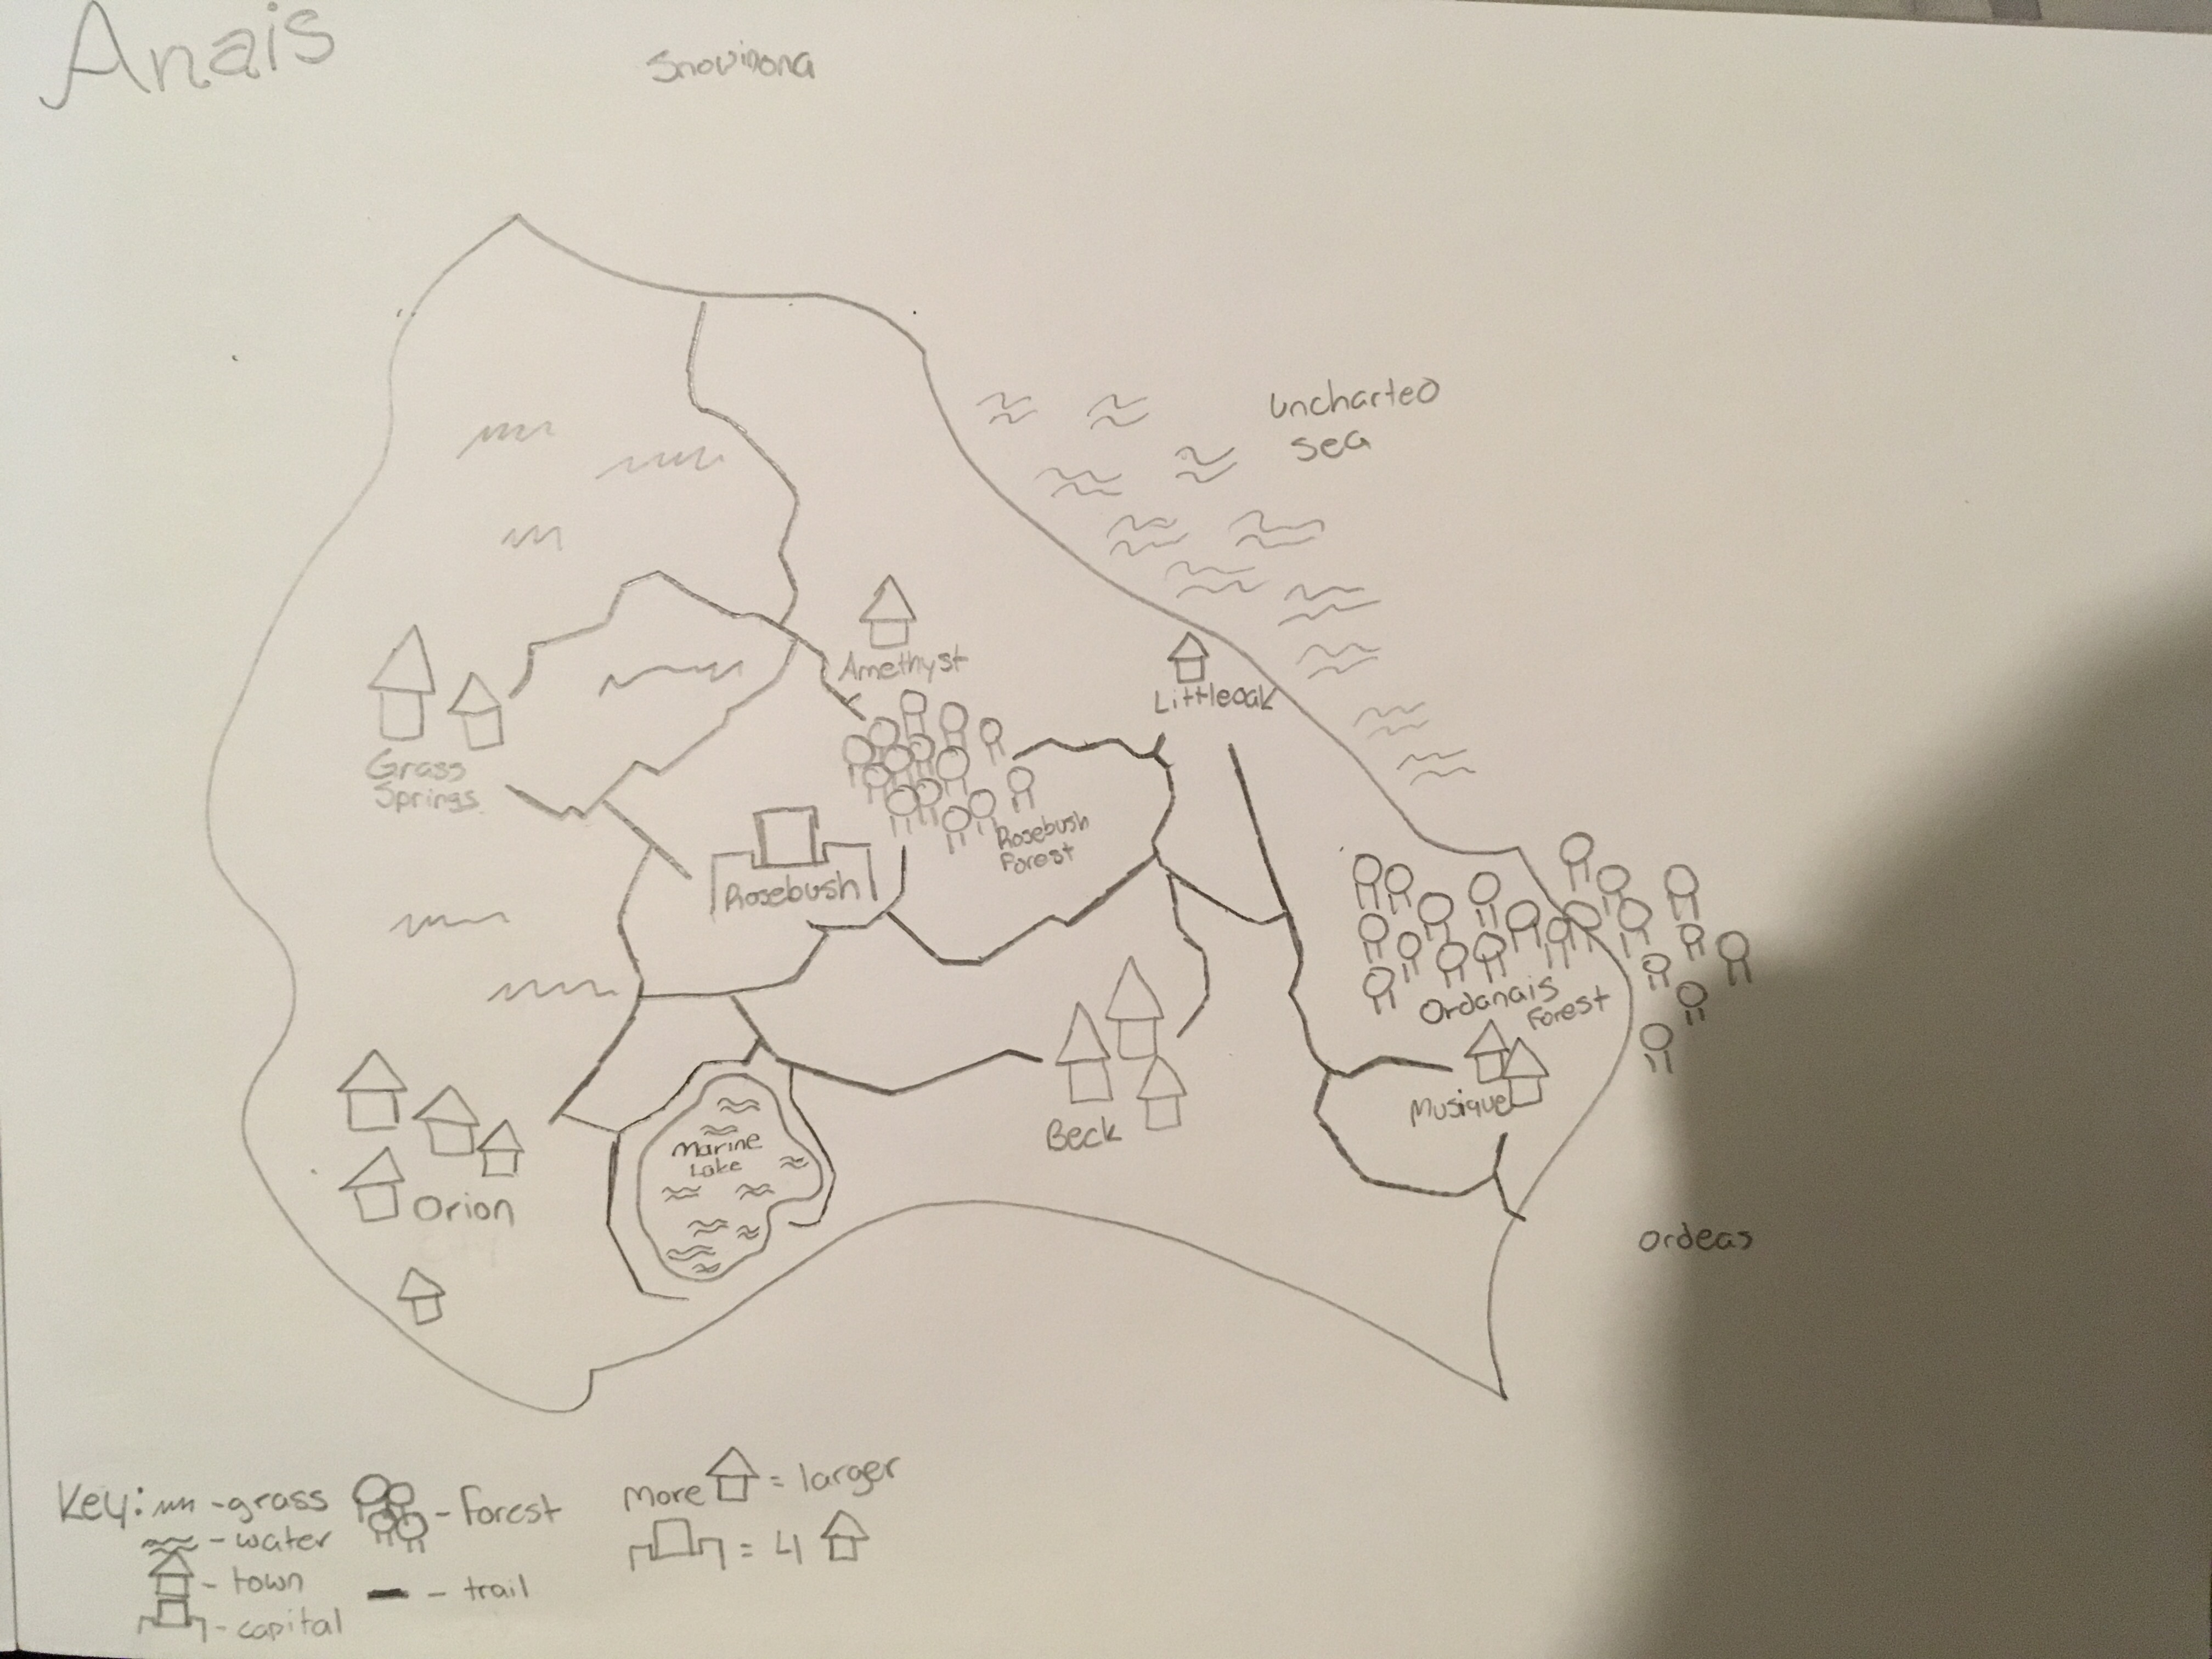 Anais
Snowinona
uncharted
sea
Amethyst
Littleoak
Grass
Springs
Rosebush
Forest
Rosebush
Ordanais
Forest
Musique
Beck
Marine
Lake
Orion
Ordeas
Key: - grass
- water
- town
- capital
- Forest
- trail
More = larger
= 4